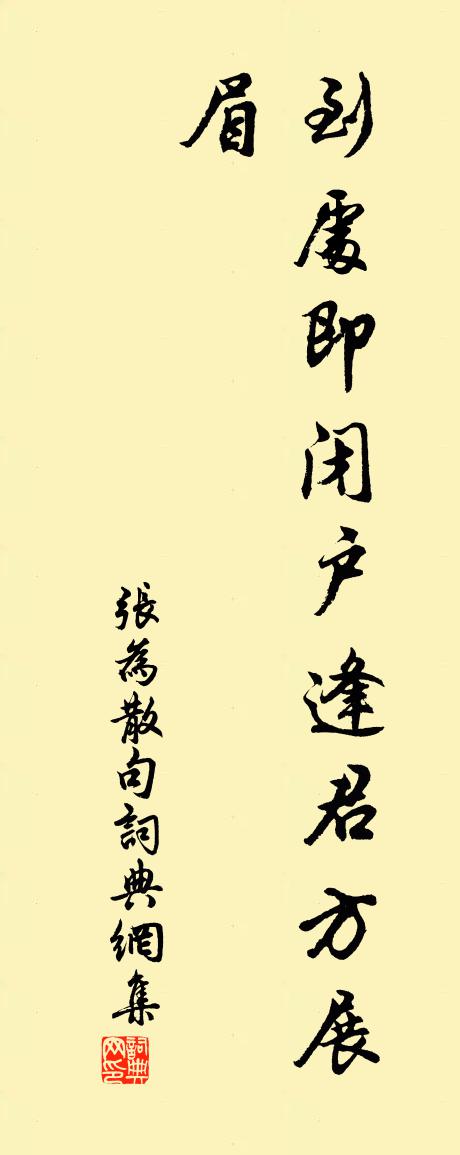 到處即闭户逢君方展
眉
張為散句詞典網集
詞典
网印